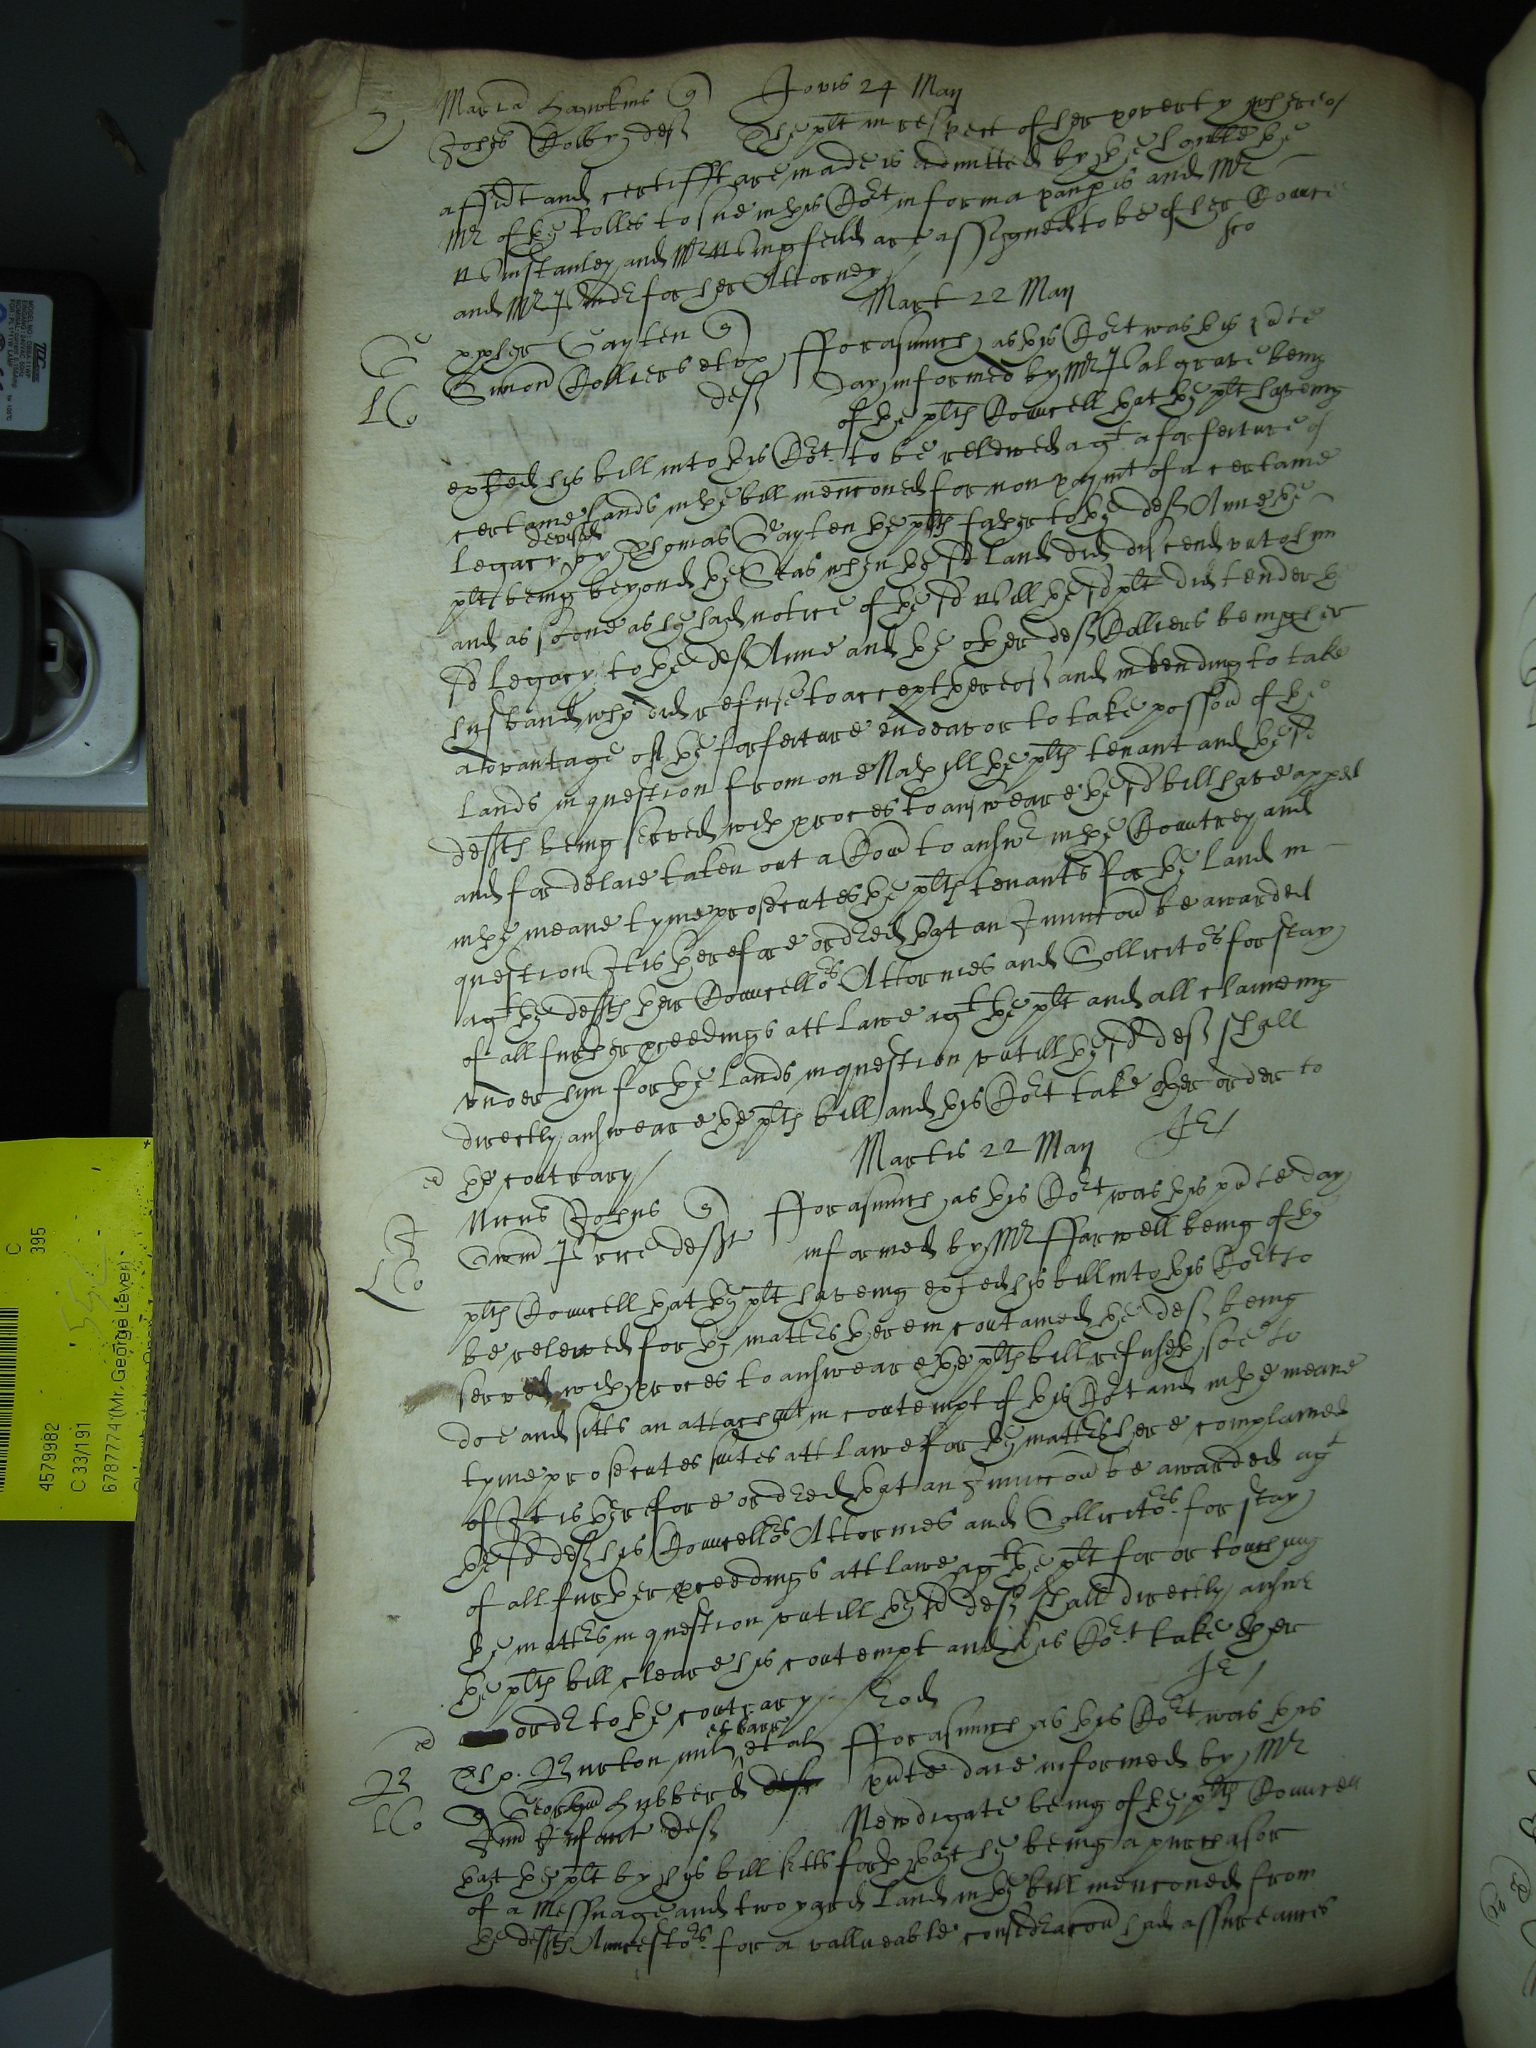 Jovis 24 May
Maria Hawkins q
Johes Colby def The plt in respect of her poverty whereof
affidt and certifft are made is admitted by the right ho:ble the
Mr of the Rolles to sue in this Cort in forma paupis and Mr
Winstanley and Mr Wingfeild are assigned to be of her Councell
and Mr for her Attorney
Mart 22 May
xpofer Gayten q
Simon Colliers et ux def
Forasmuch as this Cort was this pnte
day informed by Mr Palgrave being
of the plts Councell that the plt haveing
exhited his bill into this Cort to be releived agt a forfeiture of
certaine lands in the bill menconed for non paymt of a certaine
Legacy devised by Thomas Gayten the plts father to the def Anne the
plt being beyond the Seas when the sd land did discend unto him
and as soone as he had notice of the sd Will the sd plt did tender the
sd Legacy to the def Anne and the other def Colliers being her
husband who did refuse to accept thereof and intending to take
advantage of the forfeiture endeavor to take possion of the
lands in question from one the plts tenant and the sd
defts being served with proces to answeare the sd bill have apped
and for delaie taken out a Comn to answr in the Countrey and
in the meane tyme prosecutes the plts tenants for the land in
question It is therefore ordred that an Iniunccon be awarded
agt the defts their Councellors Attornies and Sollicitors for stay
of all further pceedings att lawe agt the plt and all claimeing
under him for the lands in question untill the sd def shall
directly answeare the plts bill and this Cort take other order to
the contrary
Martis 22 May
Nicus Johns q
Gwm Price deft
Forasmuch as this Cort was this pnte day
informed by Mr Farwell being of the
plts Councell that the plt haveing exhited his bill into this Cort to
be releived for the matters therein contained the def being
served with proces to answeare the plts bill refuseth soe to
doe and sitts an attachmt in contempt of this Cort and in the meane
tyme prosecutes suites att lawe for the matters here complained
of It is therefore ordred that an Iniunccon be awarded agt
the sd def his Councellors Attornies and Sollicitors for stay
of all further pceedings att lawe agt the plt for or touching
the matters in question untill the sd def shall directly answr
the plts bill cleare his contempt and this Cort take other
ordr to the contrary
Eod
Burton mil et barr et al q
Hubberd
Infant def
Forasmuch as this Cort was this
pnte daie informed by Mr
Newdigate being of the plts Councell
that the plt by his bill setts forth that he being a purchasor
of a Messuage and two yard land in the bill menconed from
the defts Auncestors for a valluable considracon had assureances
C
395
4579982
C 33/191
6787774 (Mr. George Lever)